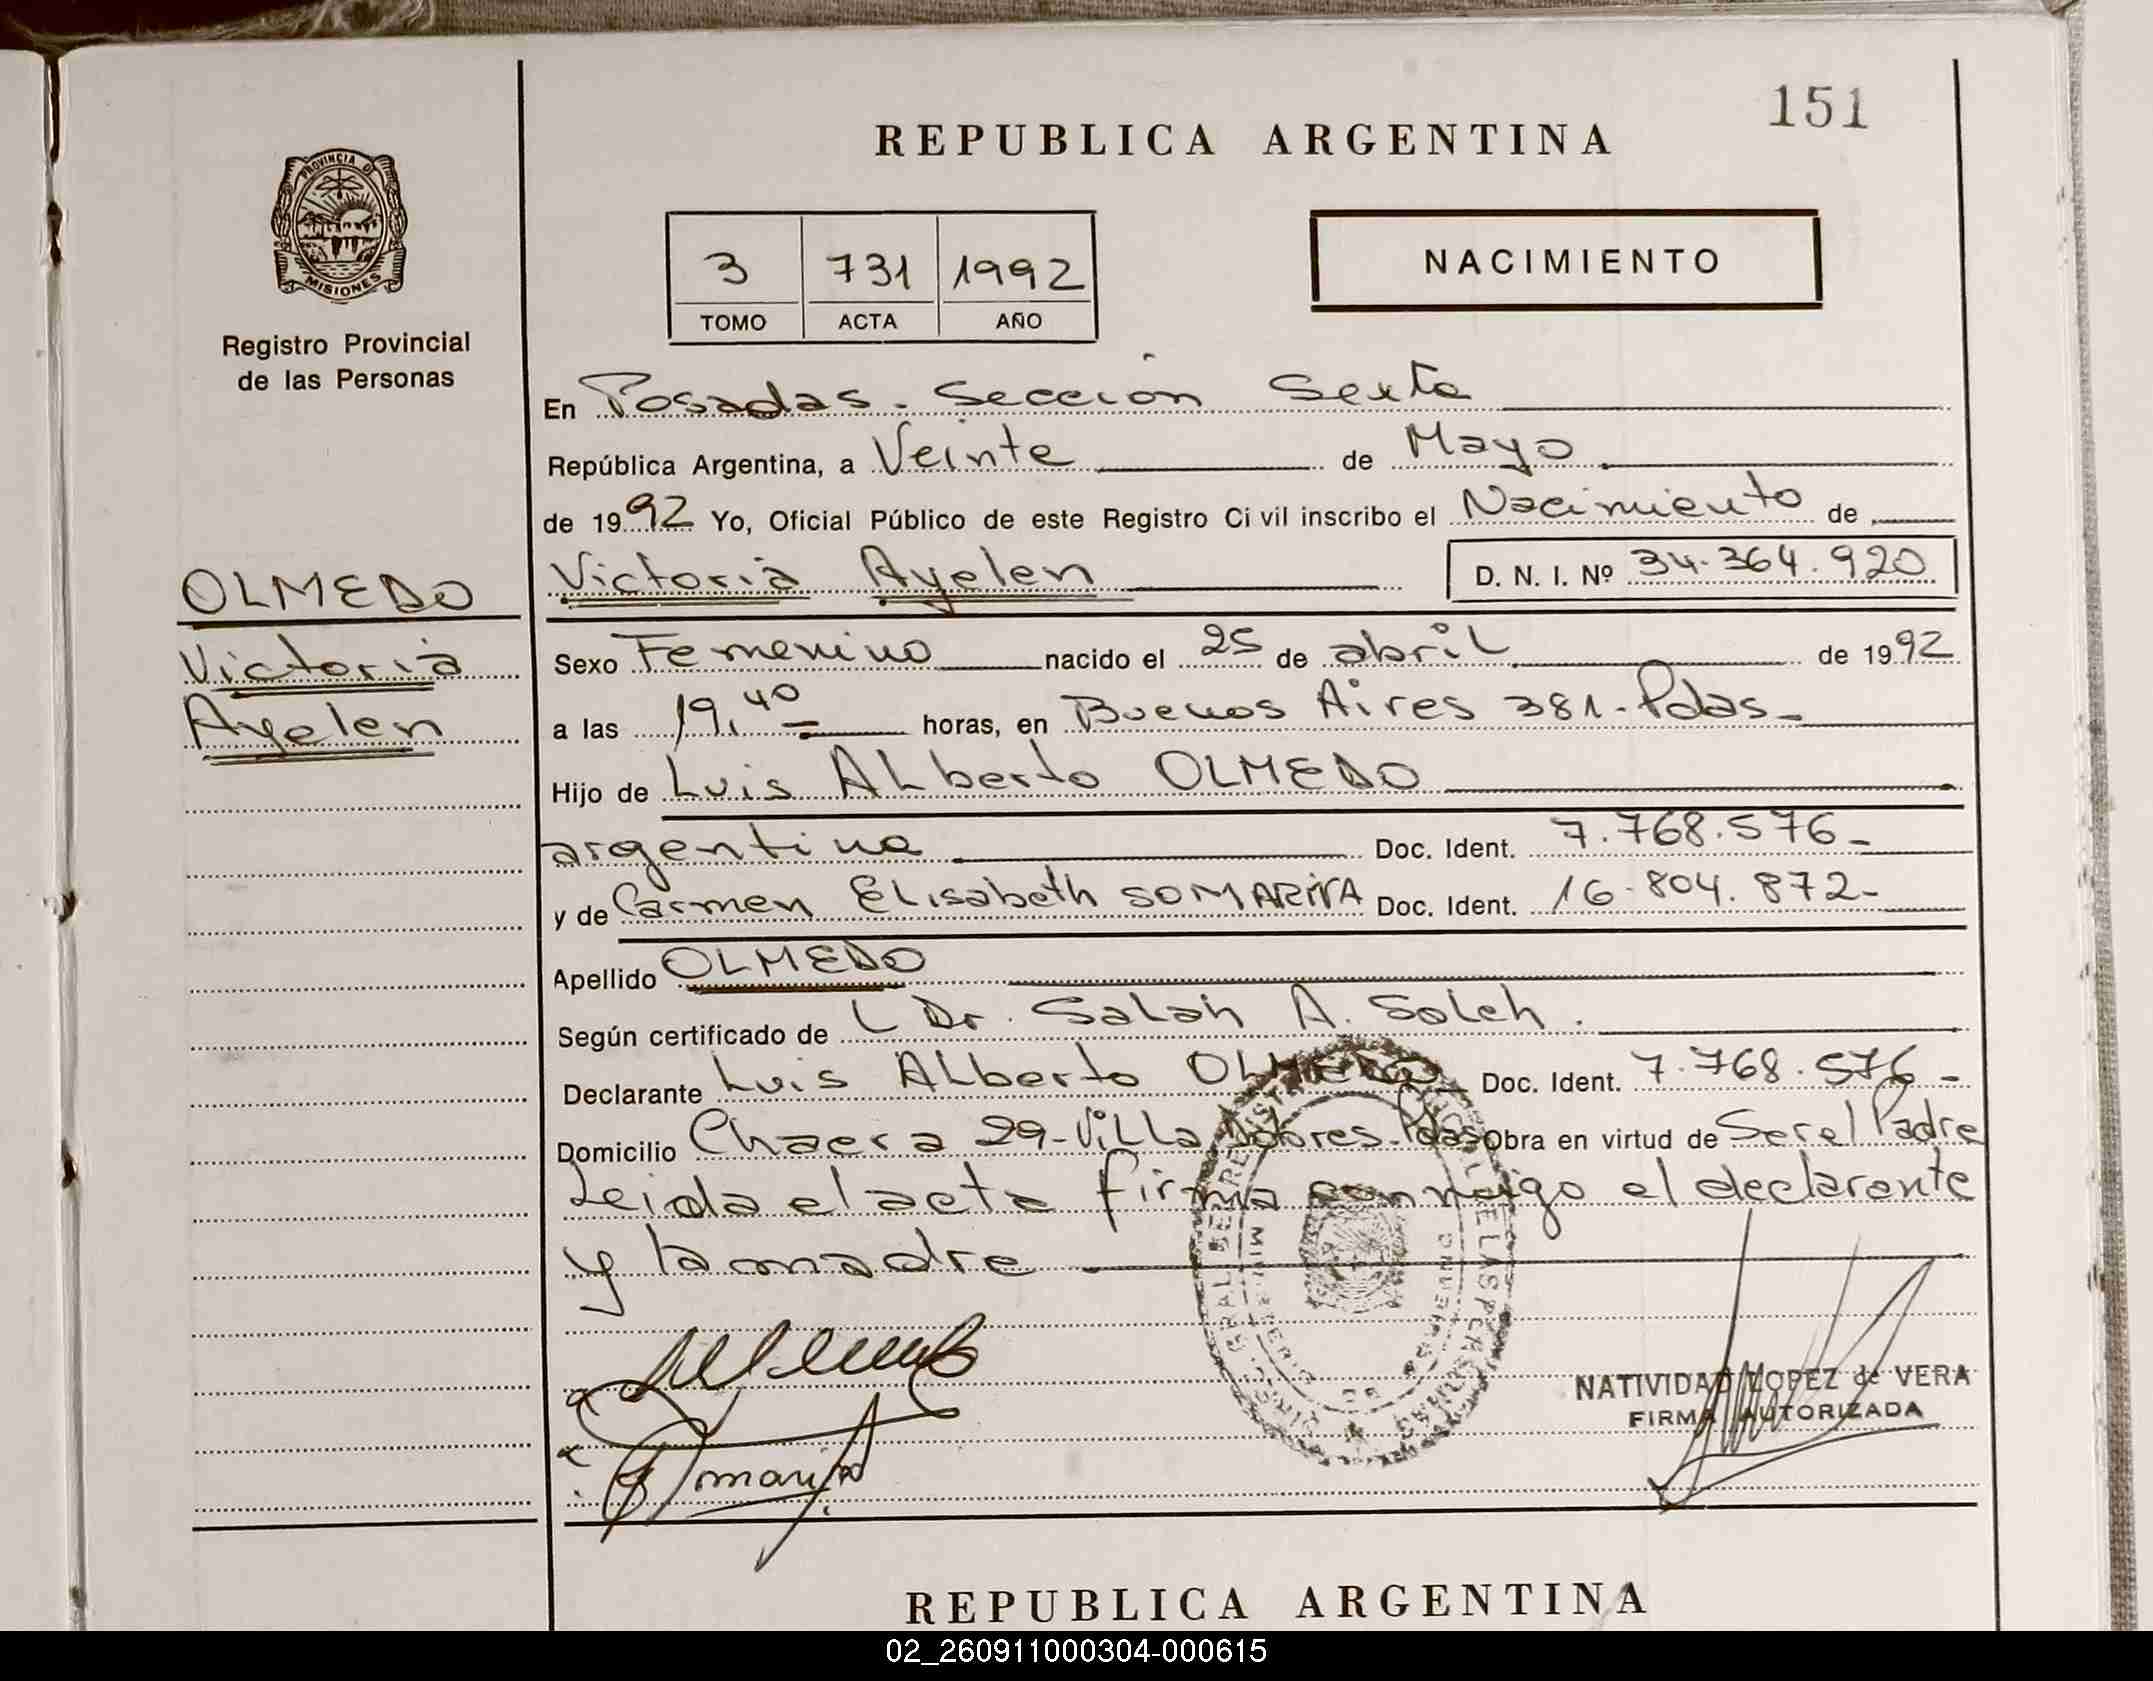 151
REPUBLICA ARGENTINA
PROVINCIA DE
MISIONES
Registro Provincial
de las Personas
3 731 1992
TOMO ACTA AÑO
NACIMIENTO
En Posadas - Sección Sexta
República Argentina, a Veinte de Mayo
de 1992 Yo, Oficial Público de este Registro Civil inscribo el Nacimiento de
OLMEDO
Victoria
Ayelen
Victoria Ayelen D. N. I. Nº 34.364.920
Sexo Femenino nacido el 25 de abril de 1992
a las 19,40 horas, en Buenos Aires 381 - Pdas -
Hijo de Luis Alberto OLMEDO
argentina Doc. Ident. 7.768.576 -
y de Carmen Elisabeth SOMARIVA Doc. Ident. 16.804.872 -
Apellido OLMEDO
Según certificado de Dr. Salah A. Soleh.
Declarante Luis Alberto OLMEDO Doc. Ident. 7.768.576 -
Domicilio Chacra 29 - Villa Dolores - Pdas Obra en virtud de Ser el Padre
Leida el acta firma conmigo el declarante
y la madre
NATIVIDAD LOPEZ de VERA
FIRMA AUTORIZADA
REPUBLICA ARGENTINA
02_260911000304-000615